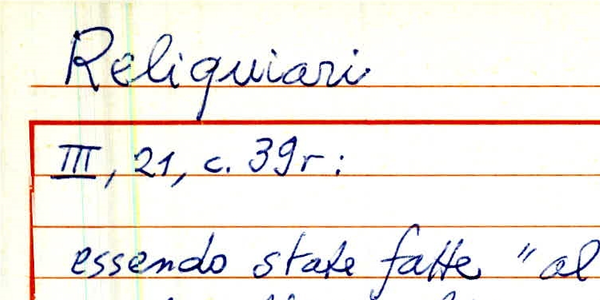 Reliquiari
III, 21, c. 39r:
essendo state fatte "al